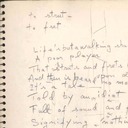 to strut -
to fret
Life's but a walking sh
a poor player
That struts and frets
And then is heard no mo
It's a tale
told by an idiot
Full of sound and
Signifying nothin